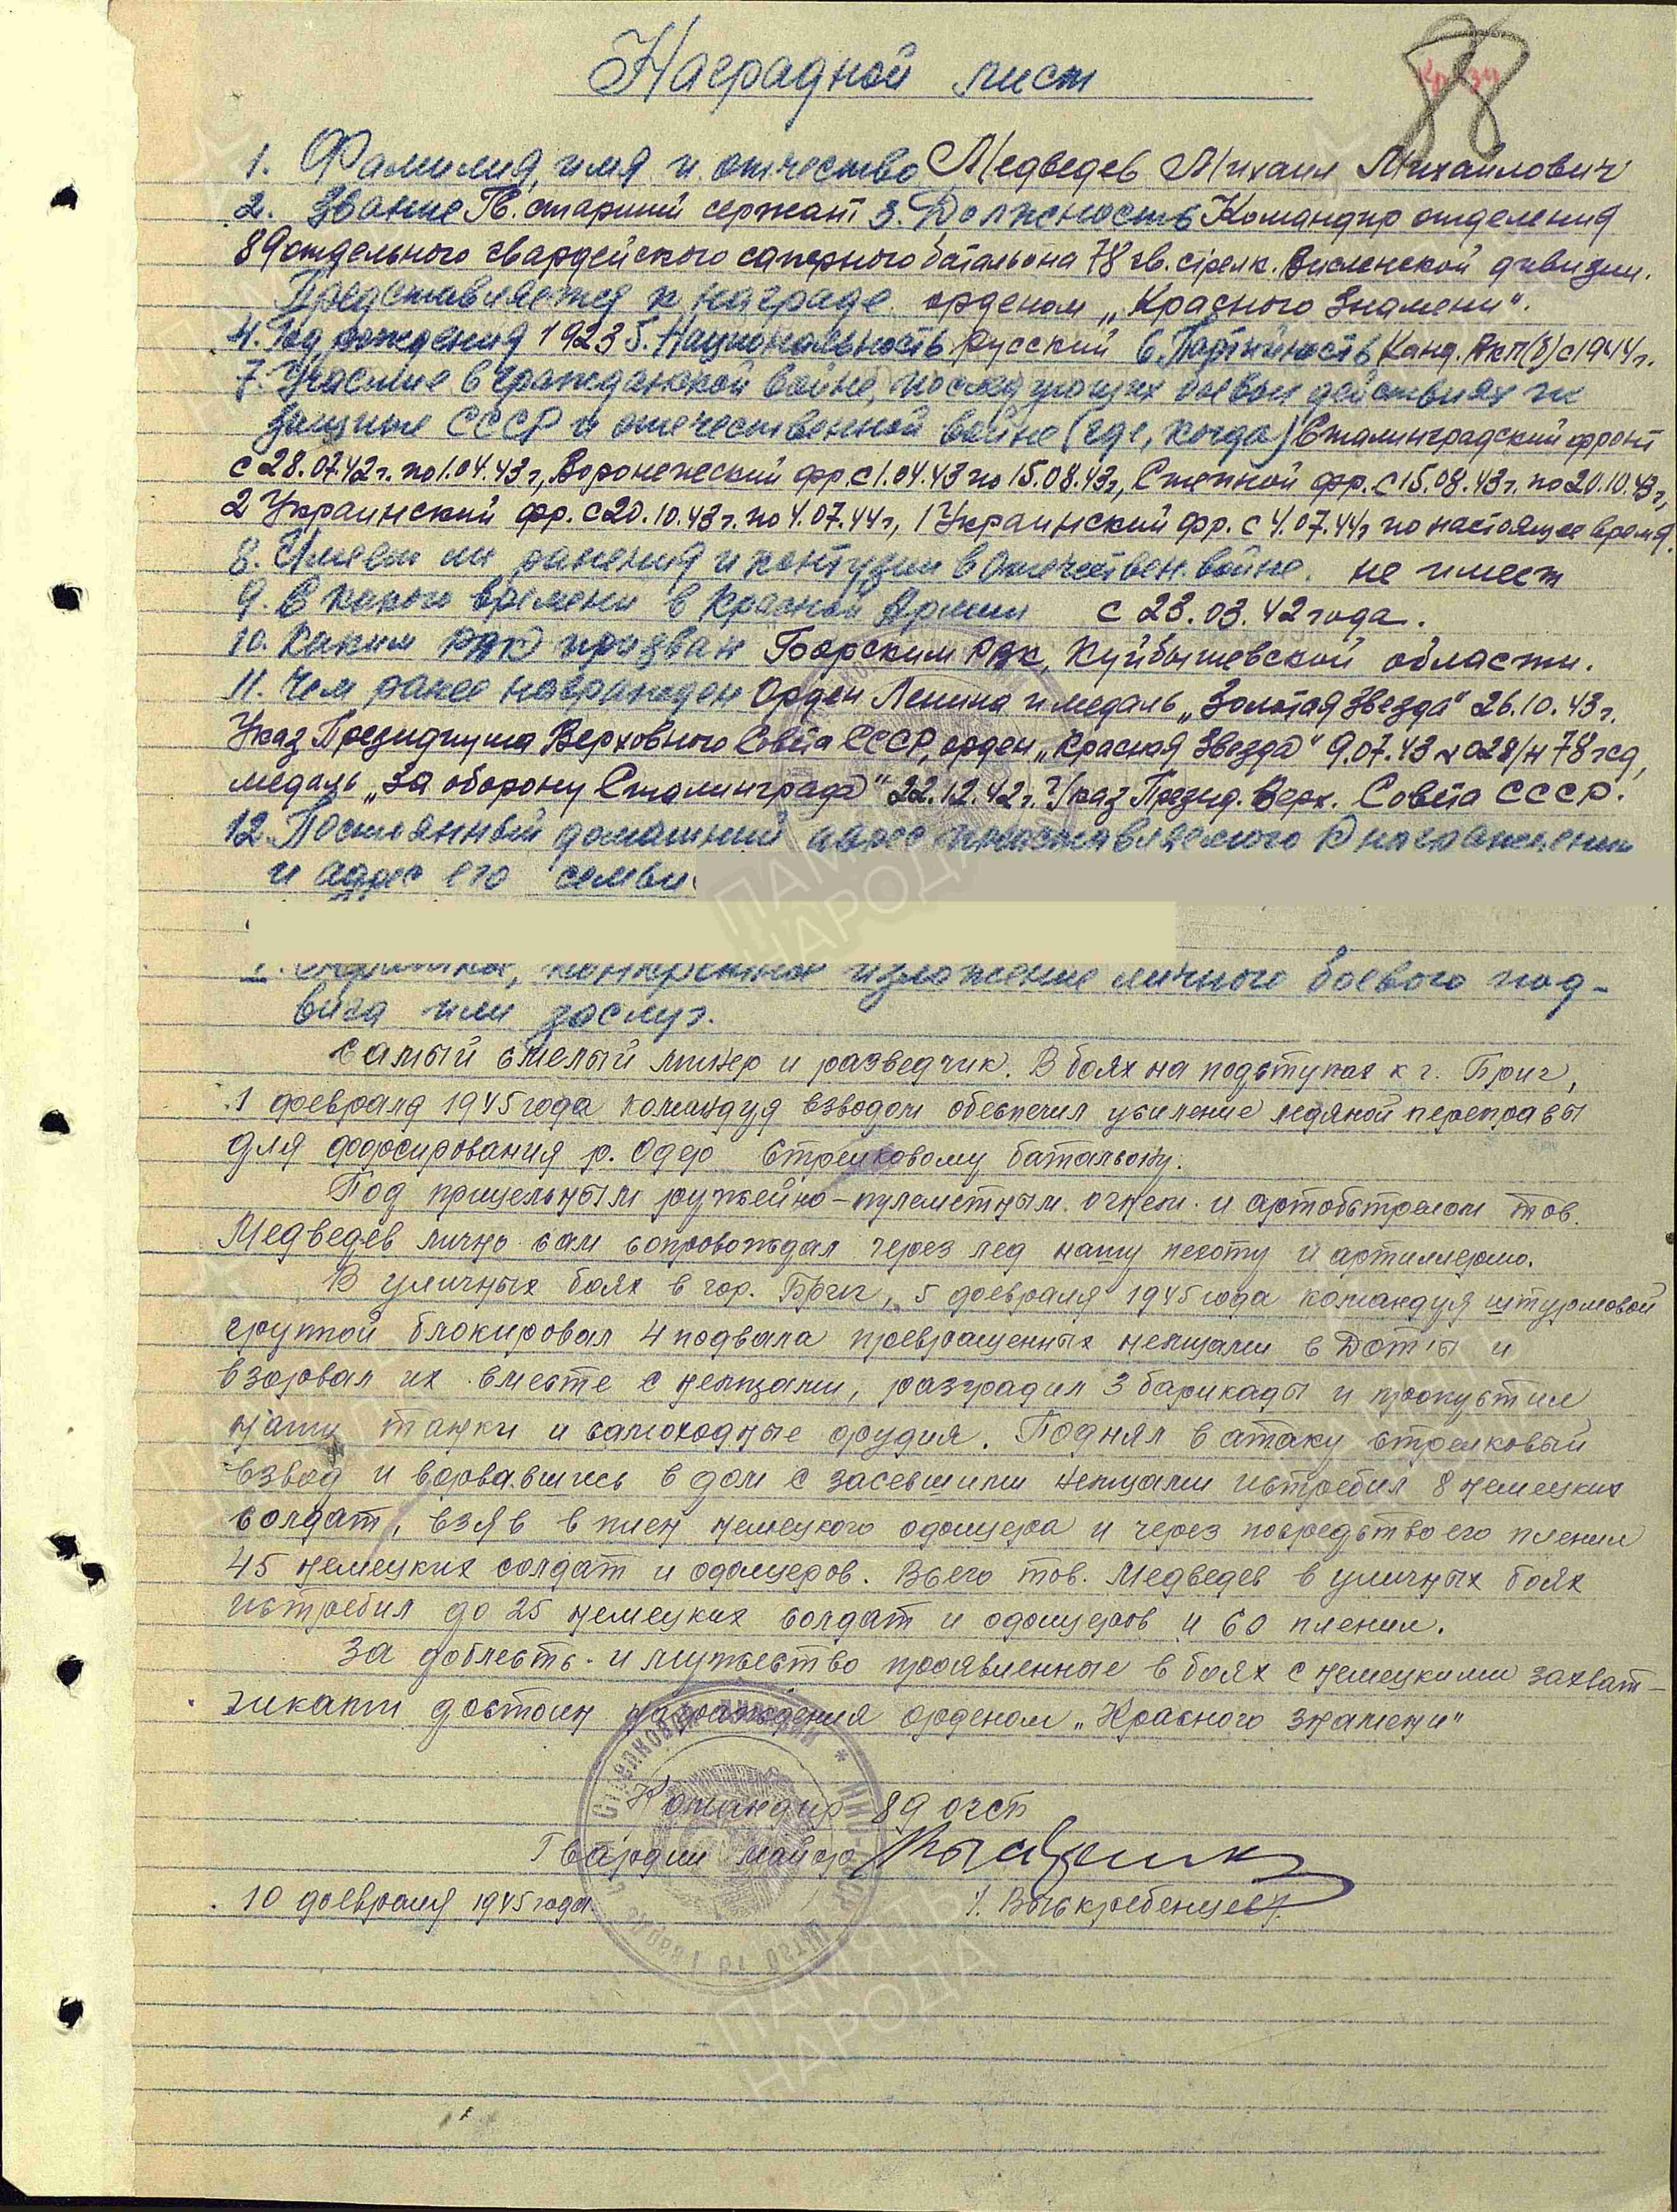 Наградной лист
88
1. Фамилия, имя и отчество Медведев Михаил Михайлович
2. Звание Гв. старший сержант 3. Должность Командир отделения
89 отдельного гвардейского саперного батальона 78 гв. стрелк. Висленской дивизии.
Представляется к награде орденом „Красного Знамени".
4. Год рождения 1923 5. Национальность русский 6. Партийность Канд. ВКП(б) с 1944 г.
7. Участие в гражданской войне, последующих боевых действиях по
защите СССР и отечественной войне (где, когда) Сталинградский фронт
с 28.07.42 г. по 1.04.43 г, Воронежский фр. с 1.04.43 по 15.08.43 г, Степной фр. с 15.08.43 г. по 20.10.43 г,
2 Украинский фр. с 20.10.43 г. по 4.07.44 г, 1 Украинский фр. с 4.07.44 г по настоящее время.
8. Имеет ли ранения и контузии в Отечествен. войне. не имеет
9. С какого времени в Красной Армии с 23.03.42 года.
10. Каким РВК призван Борским РВК, Куйбышевской области.
11. Чем ранее награжден Орден Ленина и медаль „Золотая Звезда" 26.10.43 г.
Указ Президиума Верховного Совета СССР, орден „Красная Звезда" 9.07.43 № 028/н 78 гсд,
медаль „За оборону Сталинграда" 22.12.42 г. Указ Презид. Верх. Совета СССР.
12. Постоянный домашний адрес представляемого к награждению
и адрес его семьи
конкретное изложение личного боевого под-
вига или заслуг.
Самый смелый минер и разведчик. В боях на подступах к г. Бриг,
1 февраля 1945 года командуя взводом обеспечил усиление ледяной переправы
для форсирования р. Одер стрелковому батальону.
Под прицельным ружейно-пулеметным огнем и артобстрелом тов.
Медведев лично сам сопровождал через лед нашу пехоту и артиллерию.
В уличных боях в гор. Бриг, 5 февраля 1945 года командуя штурмовой
группой блокировал 4 подвала превращенных немцами в Доты и
взорвал их вместе с немцами, разградил 3 барикады и пропустил
наши танки и самоходные орудия. Поднял в атаку стрелковый
взвод и ворвавшись в дом с засевшими немцами истребил 8 немецких
солдат, взяв в плен немецкого офицера и через посредство его пленил
45 немецких солдат и офицеров. Всего тов. Медведев в уличных боях
истребил до 25 немецких солдат и офицеров и 60 пленил.
За доблесть и мужество проявленные в боях с немецкими захват-
чиками достоин награждения орденом „Красного знамени"
Командир 89 огсб
Гвардии майор
10 февраля 1945 года.
/. Выскребенцев/.
ПАМЯТЬ НАРОДА